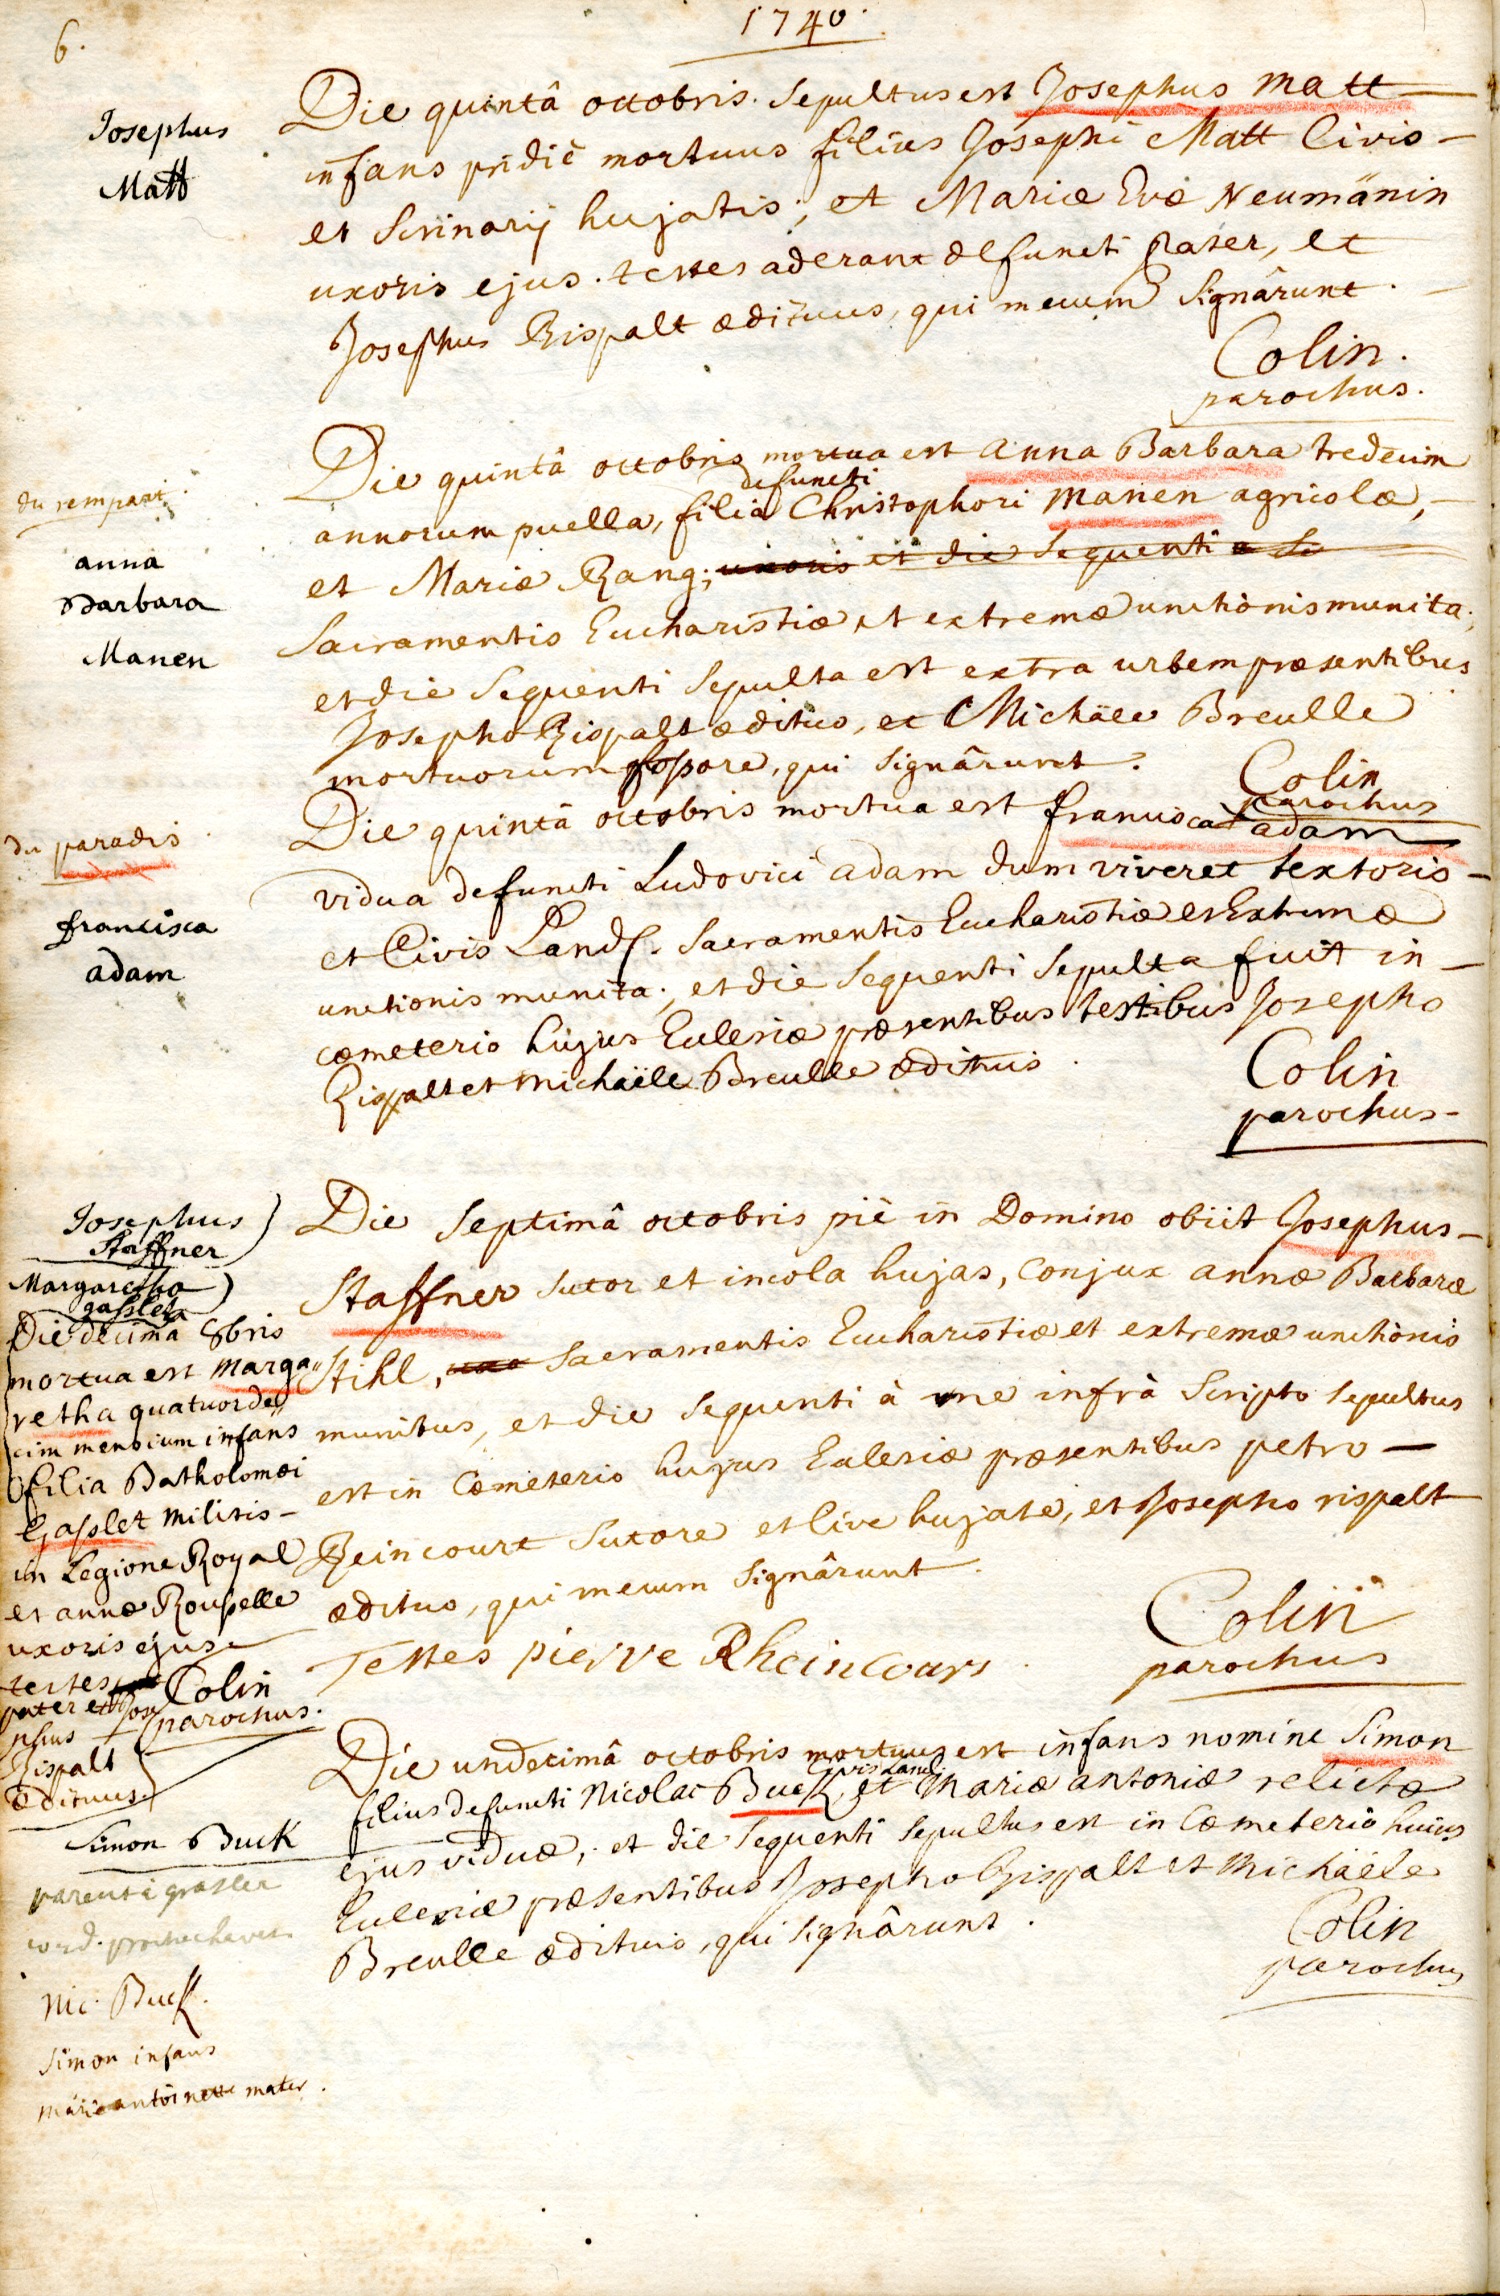 6.
1740.
Josephus
Matt
Die quintâ octobris. Sepultus est Josephus Matt
infans pridiè mortuus filius Josephi Matt Civis
et Scrinarij hujatis; et Mariæ Evæ Neumänin
uxoris ejus. testes aderant defuncti Pater, et
Josephus Rispalt ædituus, qui mecum signârunt.
Colin.
parochus.
du rempart
anna
Barbara
Manen
Die quintâ octobris mortua est anna Barbara tredecim
defuncti
annorum puella, filia Christophori Manen agricolæ,
et Mariæ Rang; uxoris et die Sequenti a
Sacramentis Eucharistiæ et extremæ unctionis munita;
et die Sequenti Sepulta est extra urbem præsentibus
Josepho Rispalt ædituo, et Michäele Breulle
mortuorum fossore, qui signârunt.
Colin
parochus
du paradis
francisca
adam
Die quintâ octobris mortua est francisca adam
vidua defuncti Ludovici adam dum viveret textoris
et Civis Land. Sacramentis Eucharistiæ et Extremæ
unctionis munita; et die Sequenti Sepulta fuit in
cæmeterio hujus Eclesiæ præsentibus testibus Josepho
Rispalt et Michaële Breulle ædituis.
Colin
parochus
Josephus
Staffner
Die Septimâ octobris piè in Domino obiit Josephus
Staffner Sutor et incola hujas, Conjux annæ Barbaræ
Stihl, Sacramentis Eucharistiæ et extremæ unctionis
munitus, et die Sequenti à me infrà Scripto Sepultus
est in Cæmeterio hujus Eclesiæ præsentibus petro
Reincourt Sutore et Cive hujate, et Josepho rispalt
ædituo, qui mecum signârunt.
Testes pierre Rheincours
Colin
parochus
Margaretha
gasslet
Die decimâ 8bris
mortua est Marga
retha quatuorde
cim mensium infans
filia Batholomæi
Gasslet Militis
in Legione Royal
et annæ Roupelle
uxoris ejus
testes
pater et Jose
phus
Rispalt
ædituus
Colin
parochus.
Simon Buck
Die undecimâ octobris mortuus est infans nomine Simon
Civis Land.
filius defuncti Nicolai Buck, et Mariæ antoniæ relictæ
ejus viduæ; et die Sequenti Sepultus est in Cæmeterio huius
Eclesiæ præsentibus Josepho Rispalt et Michäele
Breulle ædituis, qui signârunt.
Colin
parochus
Nic. Buck.
Simon infans
Marie antoinette mater.